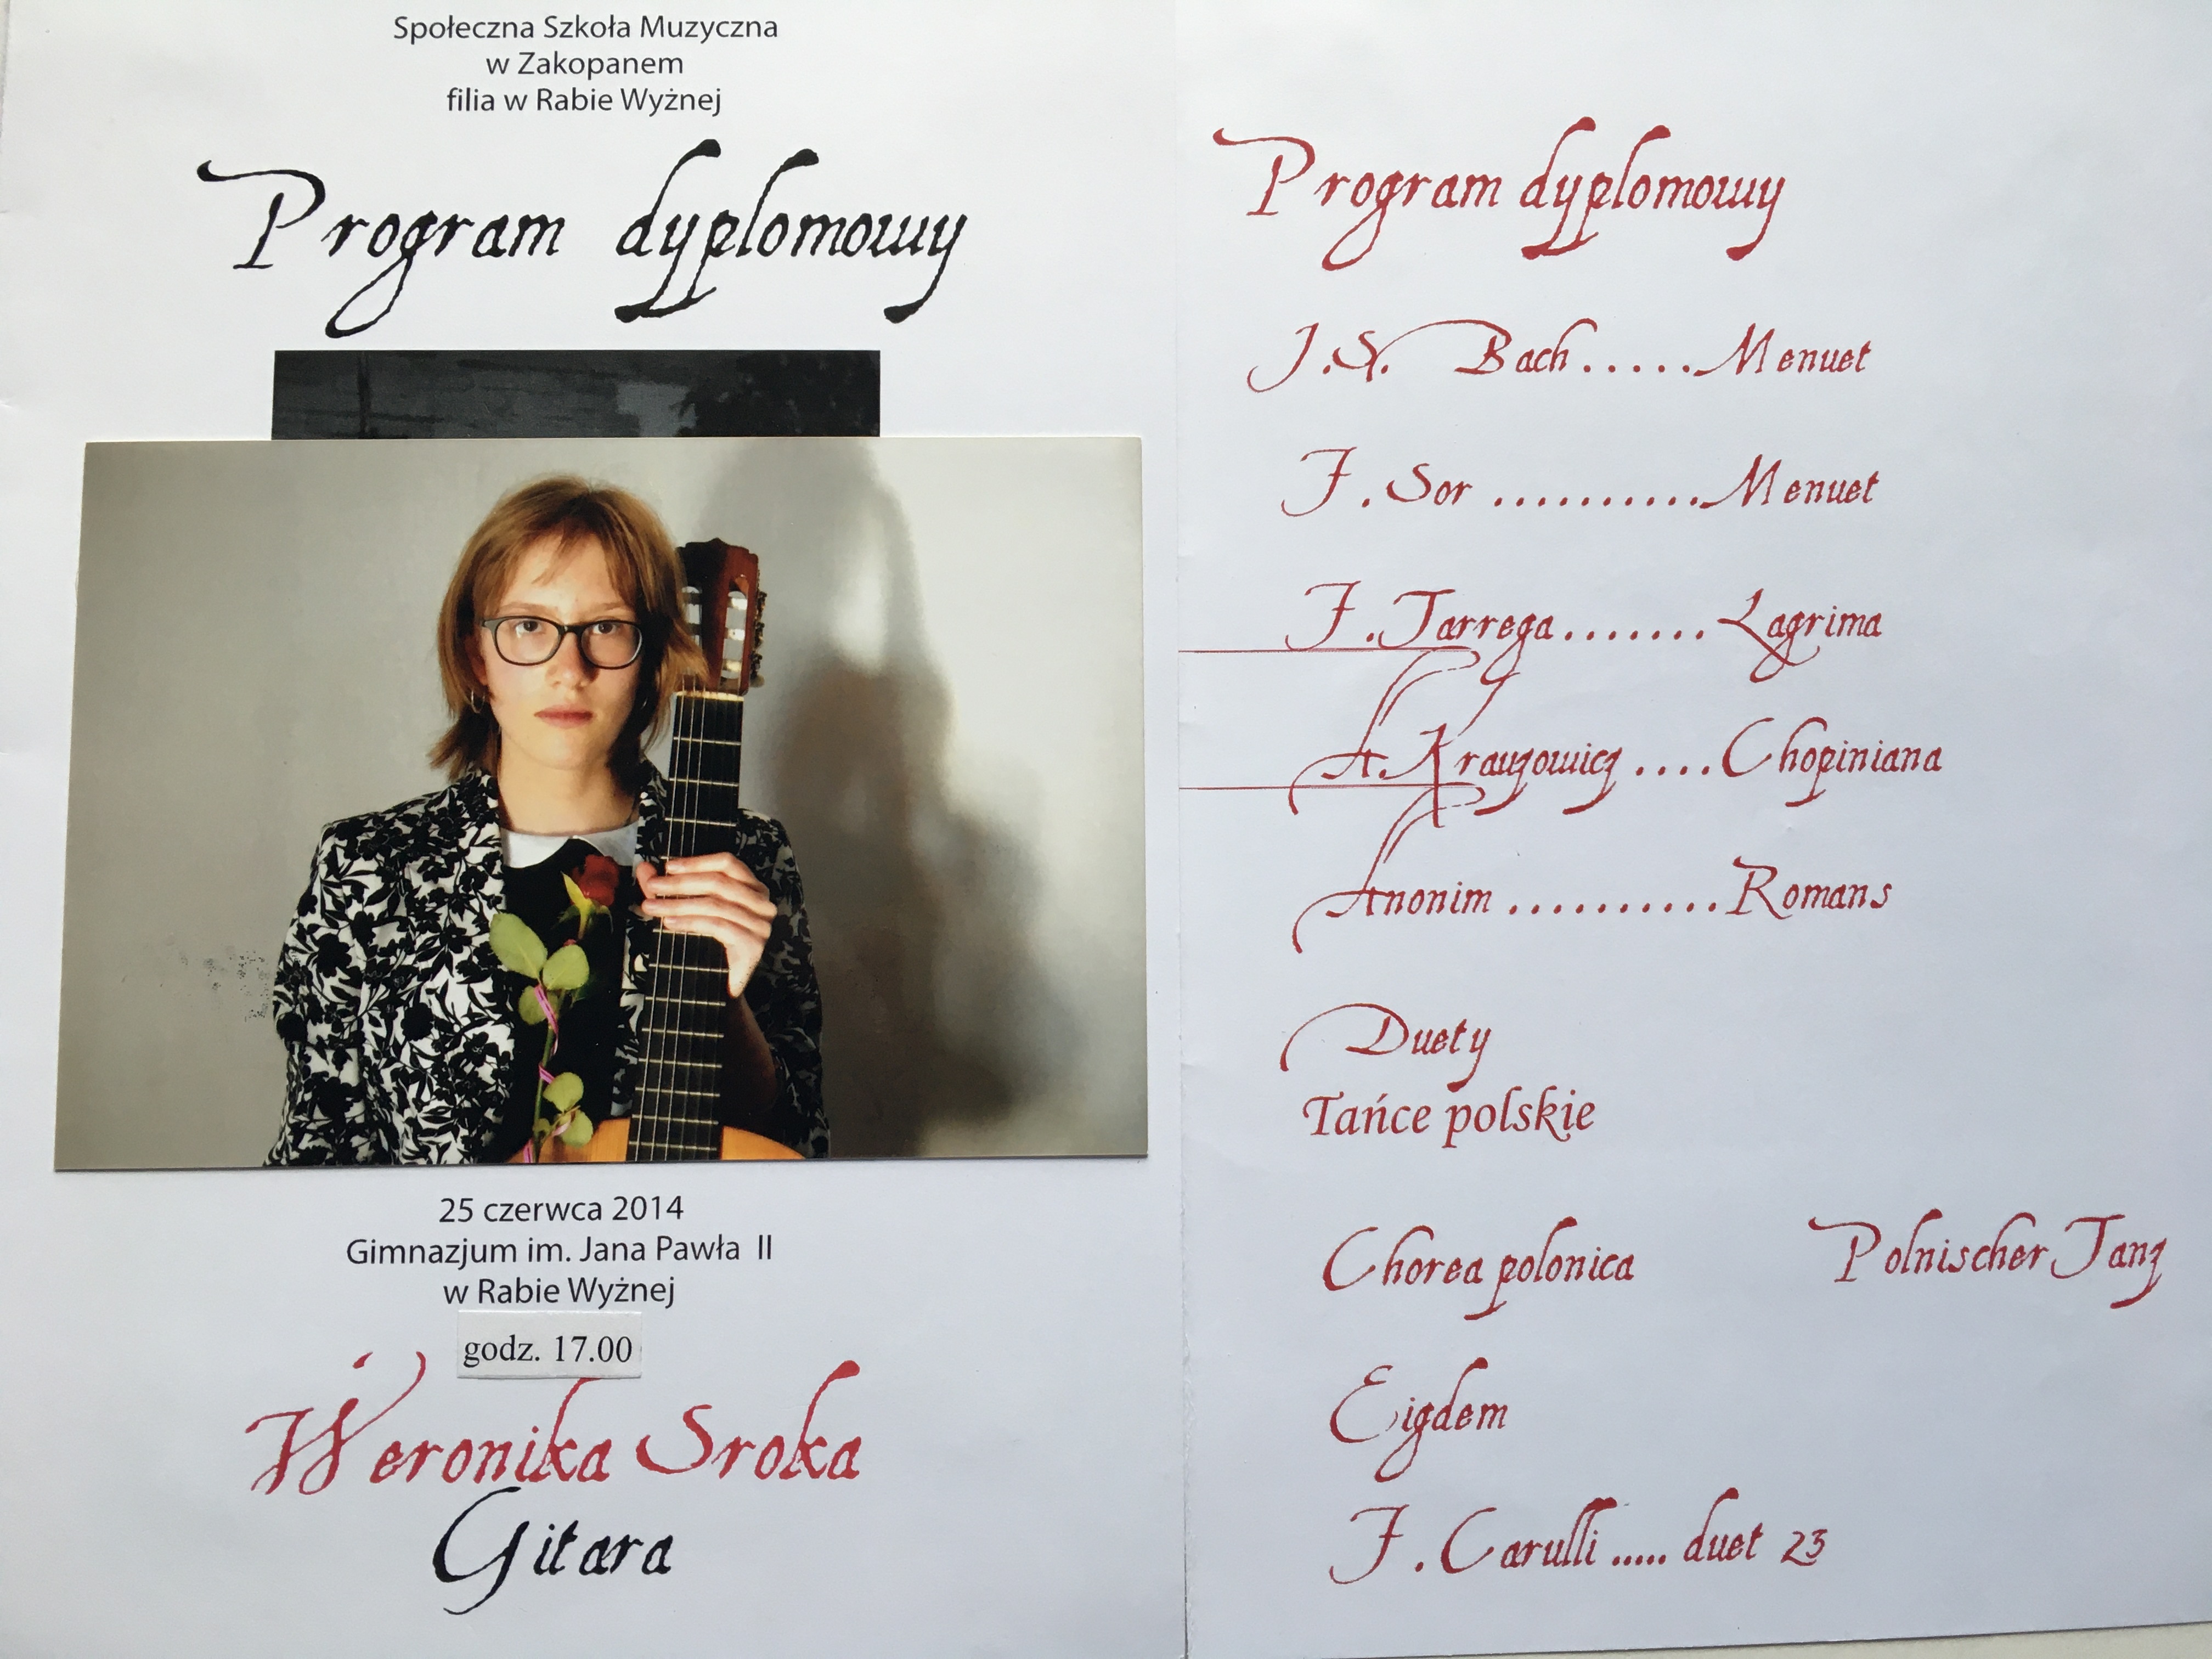 Społeczna Szkoła Muzyczna
w Zakopanem
filia w Rabie Wyżnej
Program dyplomowy
25 czerwca 2014
Gimnazjum im. Jana Pawła II
w Rabie Wyżnej
godz. 17.00
Weronika Sroka
Gitara
Program dyplomowy
J.S. Bach.....Menuet
F. Sor ..........Menuet
F. Tarrega....... Lagrima
A. Krauzowicz ....Chopiniana
Anonim ..........Romans
Duety
Tańce polskie
Chorea polonica Polnischer Tanz
Eigdem
F. Carulli ..... duet 23